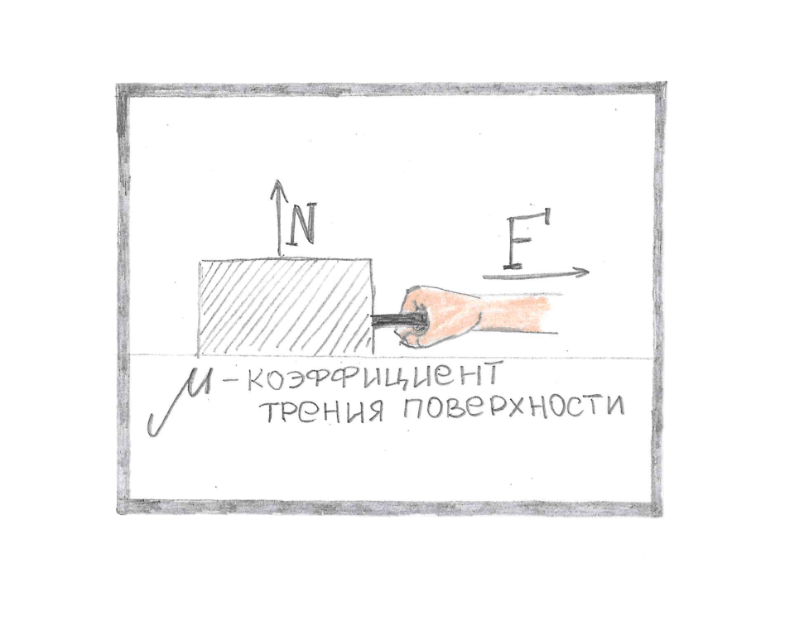 N
F
μ - коэффициент
трения поверхности